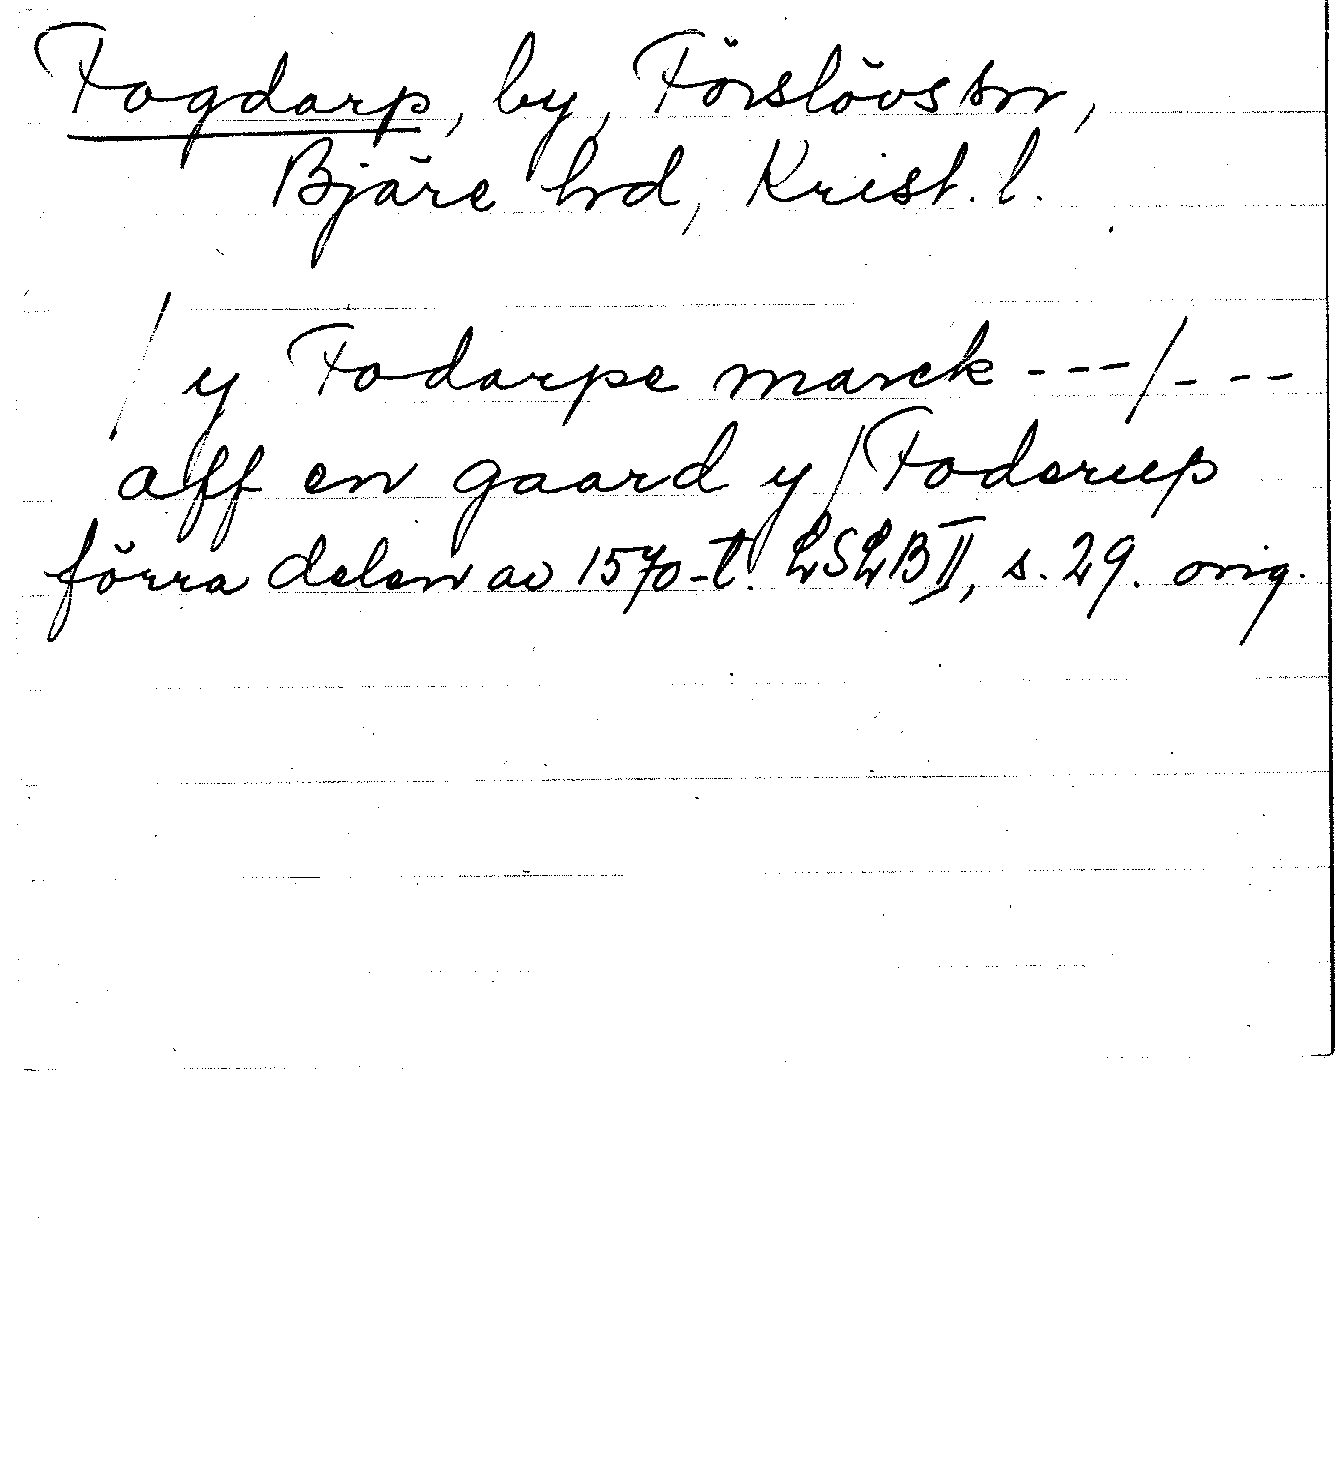 Fogdarp, by, Förslövs sn,
Bjäre hrd, Krist. l.
/ y Fodarpe marck - - - / - - -
aff en gaard y / Foderup
förra delen av 1570-t. LSLB II, s. 29. orig.